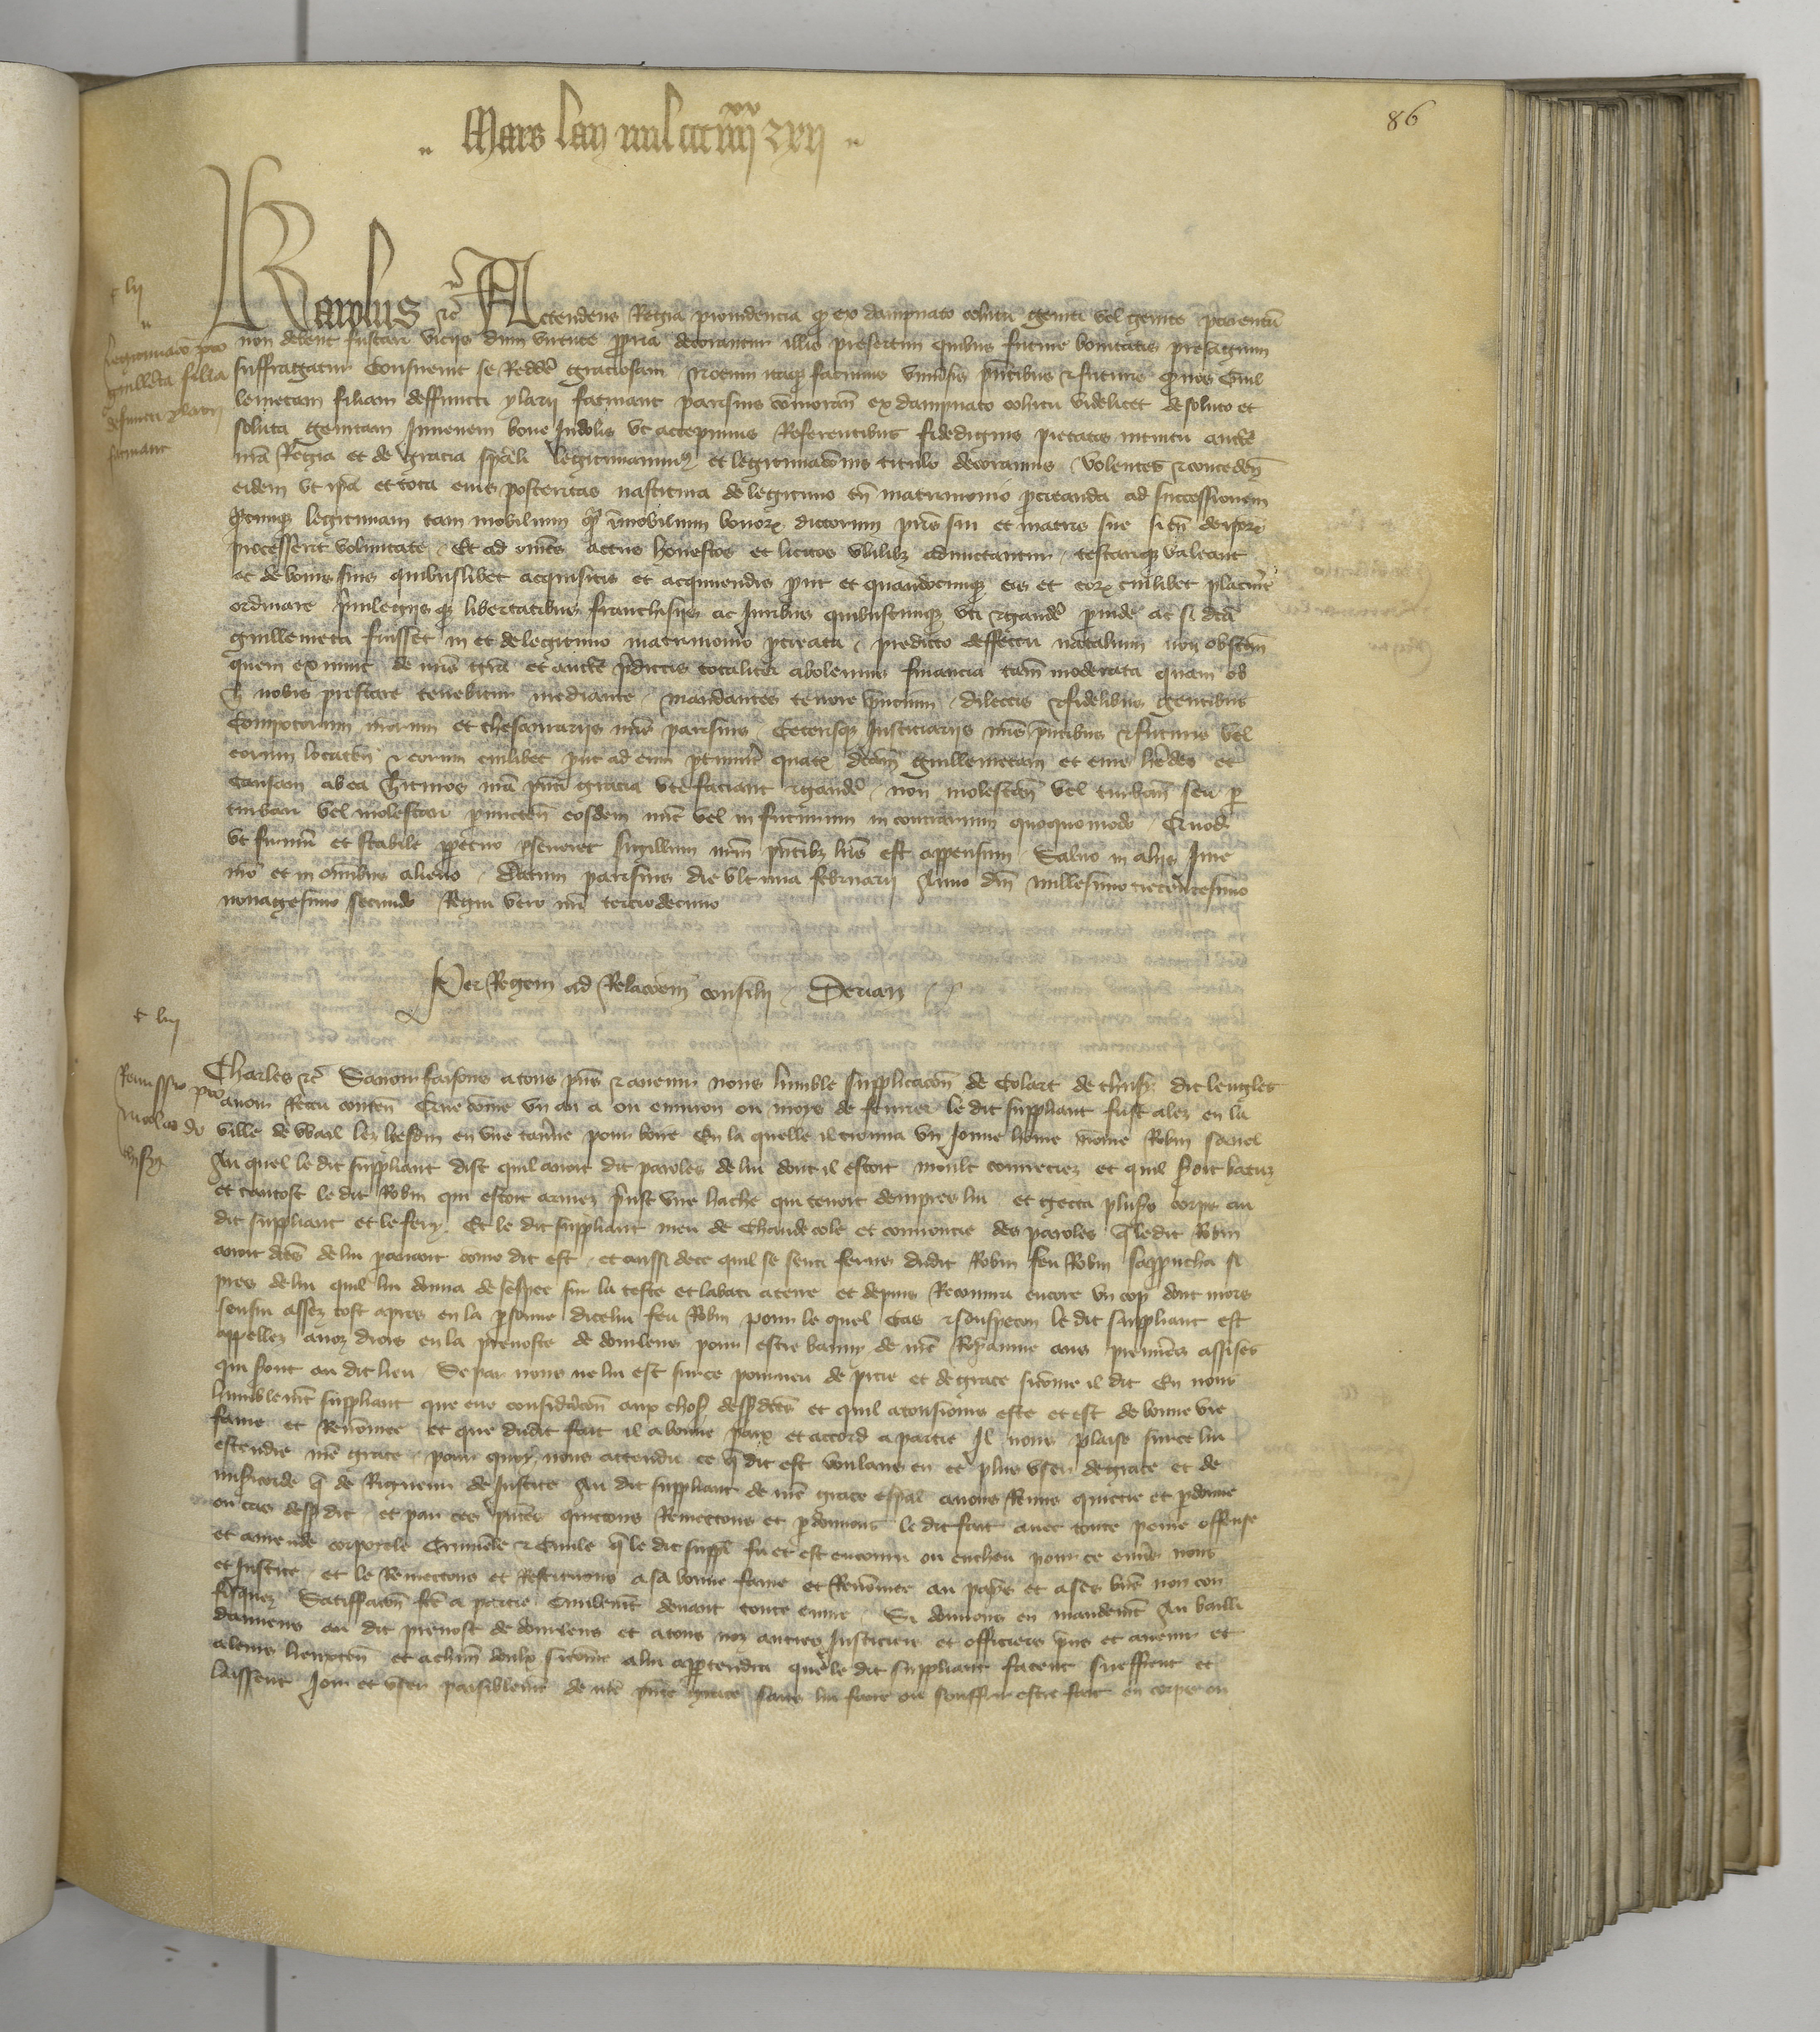 86
Mars lan mil ccc iiij xx xii
c lii
Legitimacio pro
guillemeta filia
defuncti ylarii
fatinant
Karolus etc Actendens Regia providencia quod ex dampnato cohitu geniti vel genite parentum
non debent fuscari viciis dum virtute propria decorantur illis presertim quibus future bonitatis presagium
suffragatur Consuevit se Reddere graciosam Notum itaque facimus universis presentibus et futuris quod nos Guil
lemetam filiam deffuncti ylarii fatinant parisius commorantem ex dampnato cohitu videlicet de soluto et
soluta genitam Juvenem bone Indolis ut accepimus Referentibus fidedignis pietatis intuitu aucte
nra Regia et de gracia spali legitimamus et legitimacionis titulo decoramus Volentes et conceden
eidem ut ipa et tota eius posteritas nascitura de legitimo tn matrimonio procreanda ad successionem
quamcumque legitimam tam mobilium quam immobilium bonorum dictorum patris sui et matris sue si tn de ipsorum
processerit voluntate Et ad omnes actus honestos et licitos utilibz admictantur testarique valeant
ac de bonis suis quibuslibet acquisitis et acquirendis prout et quandocumque eis et eorum cuilibet placuerit
ordinare privilegiisque libertatibus franchisiis ac Juribus quibuscumque uti et gaudere perinde ac si dicta
guillemeta fuisset in et de legitimo matrimonio procreata predicto deffectu natalium non obstante
quem ex nunc de nris gracia et aucte predictis totaliter abolemus financia tamen moderata quam ob
hoc nobis prestare tenebitur mediante mandantes tenore presentium dilectis et fidelibus gentibus
Compotorum nostrorum et thesaurariis nris parisius Ceterisque Justiciariis nris presentibus et futuris vel
eorum locatenentibus et eorum cuilibet prout ad eum pertinuerit quatenus dictam guillemetam et eius heredes et
causam ab ea habituros nra presenti gracia uti faciant et gaudere non molestantes vel turbantes seu per
turbari vel molestari permictentes eosdem nunc vel in futurum in contrarium quoquo modo Quod
ut firmum et stabile perpetuo perseveret sigillum nrm presentibus litteris est appensum Salvo in aliis Jure
nro et in omnibus alieno Datum parisius die ultima februarii Anno dni millesimo trecentesimo
nonagesimo secundo Regni vero nri terciodecimo
Per Regem ad Relacionem consilii Derian
c liii
Remissio pro
Nicolao de
Charles etc Savoir faisons a tous presens et avenir nous humble supplicacion de Colart de dit lengles
avoir Receu contenant Que comme un an a ou environ ou moys de fevrier le dit suppliant fust alez en la
ville de Wail lez hesdin en une taverne pour boire En la quelle il trouva un Jeune homme nomme Robin
Au quel le dit suppliant dist quil avoit dit paroles de lui dont il estoit moult courrouciez et quil seroit batuz
et tantost le dit Robin qui estoit armez prinst une hache qui tenoit dempres lui et getta plusieurs corps au
dit suppliant et le fery Et le dit suppliant meu de Chaude cole et courroucie des paroles que ledit Robin
avoit dictes de lui paravant comme dit est et aussi de ce quil se senti ferus dudit Robin feu Robin sapproucha si
pres de lui quil lui donna de lespee sur la teste et labati a terre et depuis Recouvra encore un cop dont mors
sensui assez tost apres en la personne dicelui feu Robin pour le quel Cas et souspecon le dit suppliant est
appellez a noz drois en la prevoste de dourlens pour estre banny de nre Royaume aus premieres assises
qui seront au dit lieu Se par nous ne lui est surce pourveu de pitie et de grace sicomme il dit En nous
humblement suppliant que eue consideracion aux choses dessusdictes et quil a tousiours este et est de bonne vie
fame et Renommee et que dudit fait il a bonne paix et accord a partie Il nous plaise surce lui
estendre nre grace pour quoy nous attendu ce que dit est voulans en ce plus user de grace et de
misericorde que de Rigueur de Justice Au dit suppliant de nre grace espal avons Remis quictie et pardonne
ou cas dessusdit et par ces presentes quictons Remectons et pardonnons le dit fait avec toute peine offense
et amende corporele Criminele et Civile que le dit suppliant fu et est encouru ou encheu pour ce envers nous
et Justice et le Remectons et Restituons a sa bonne fame et Renommee au pays et a ses biens non con
fisquez Satisfaccion faicte a partie Civilement devant toute euvre Si donnons en mandement Au bailli
damiens au dit prevost de dourlens et a tous noz autres Justiciers et officiers presens et avenir et
a leurs lieuxtenans et a chacun deulx sicomme a lui appartendra que le dit suppliant facent sueffrent et
laissent Joir et user paisiblement de nre presente grace sans lui faire ou souffrir estre fait en corps ou